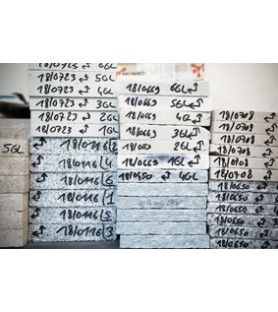 18/0723 ↵ 6GL
18/0723 ↵ 5GL
18/0723 ↵ 4GL
18/0723 ↵ 3GL
18/0723 ↵ 2GL
18/0723 ↵ 1GL
18/0116
18/0116 (4
18/0116 (6
18/0116 (1
18/0116 (5
18/0116 (3
5GL
18/0669 6GL ↵
18/0669 5GL ↵
18/0669 4GL ↵
18/0669 3GL ↵
2GL ↵
18/0669 1GL ↵
18/0650 ↵ 4GL
18/0708
18/0708
18/0708
18/0708
18/0708
18/0708
18/0650
18/0650
18/0650
18/0650
18/0650